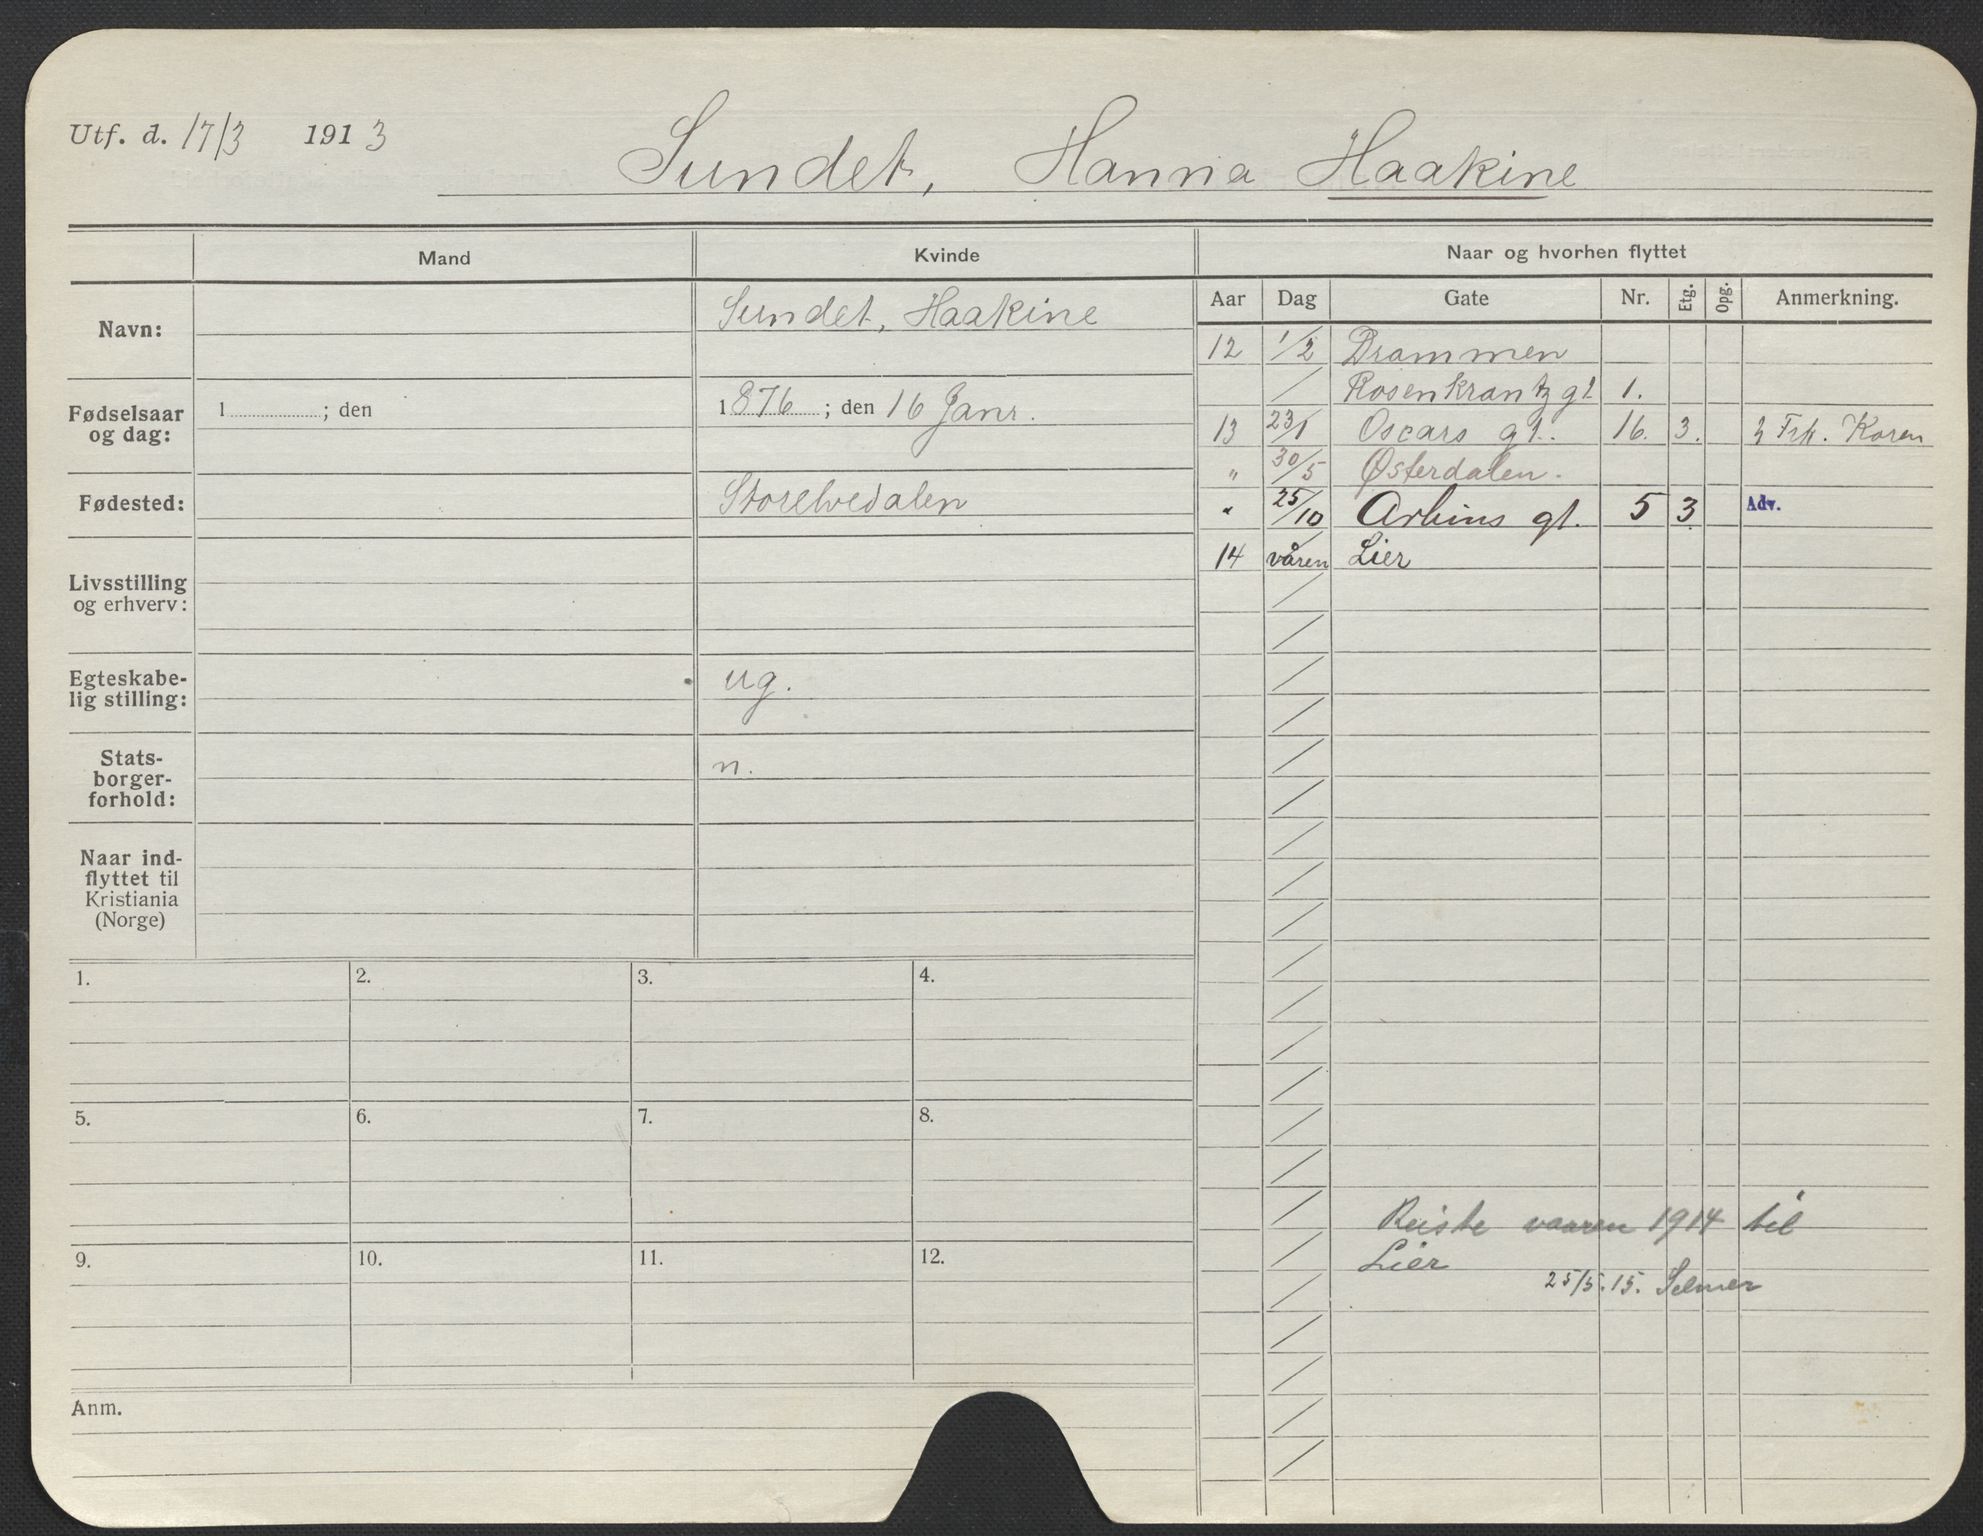 Utf. d. 17/3 1913
Sundet, Hanna Haakine
Mand
Kvinde
Naar og hvorhen flyttet
Aar Dag Gate Nr. Etg. Opg. Anmerkning.
Navn:
Sundet, Haakine
Fødselsaar
og dag:
1 ; den
1876 ; den 16 Janr.
Fødested:
Storelvedalen
Livsstilling
og erhverv:
Egteskabe-
lig stilling:
ug.
Stats-
borger-
forhold:
n.
Naar ind-
flyttet til
Kristiania
(Norge)
12 1/2 Drammen
Rosenkrantz gt 1.
13 23/1 Oscars gt. 16. 3. Frk. Koren
" 30/5 Østerdalen.
" 25/10 Arbins gt. 5 3 Adv.
14 våren Lier
Reiste vaaren 1914 til
Lier
25/5.15. Selmer
1. 2. 3. 4.
5. 6. 7. 8.
9. 10. 11. 12.
Anm.